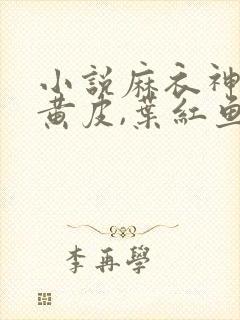 小說麻衣神
黃皮,葉紅魚
李再學